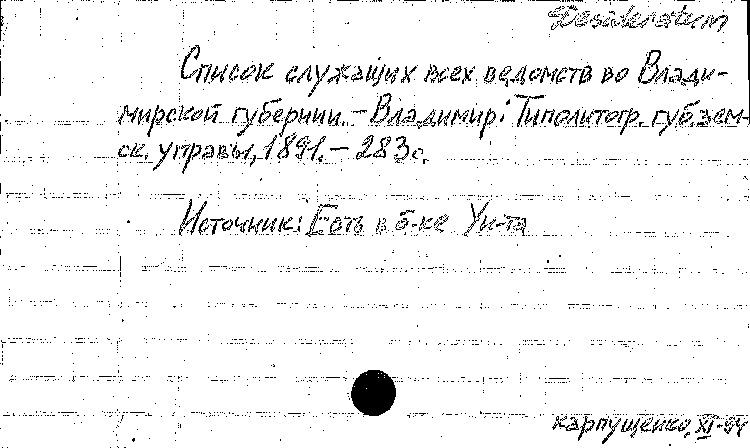 Desideratum
Список служащих всех ведомств во Влади-
мирской губернии. – Владимир: Типолитогр. губ. зем-
ск. управы, 1891. – 283 с.
Источник: Есть в б-ке Ун-та
Карпущенко, XI-94